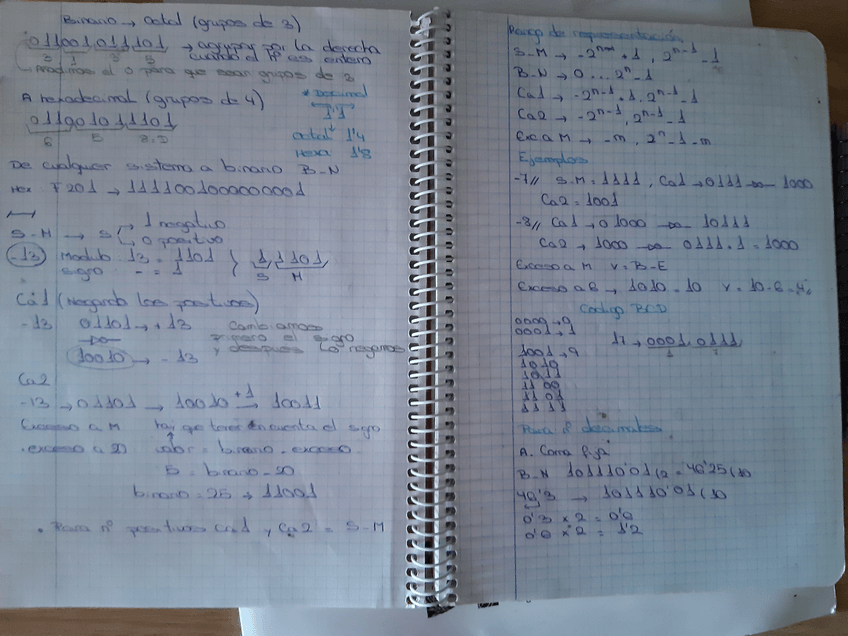 Binario → Octal (grupos de 3)
011001011101 → agrupar por la derecha
cuando el nº es entero
3 1 3 5
Añadimos el 0 para que sean grupos de 3
A hexadecimal (grupos de 4)
* Decimal
1'1
011001011101
6 5 B:D
Octal 1'4
Hexa 1'8
De cualquier sistema a binario B-N
Hex F201 → 1111001000000001
S-M → S 1 negativo
0 positivo
-13 Modulo 13 = 1101
signo - = 1
1,1101
S M
Ca1 (Negando los positivos)
-13 01101 → +13
Cambiamos
primero el signo
y después lo negamos
10010 → -13
Ca2
-13 → 01101 → 10010 +1 → 10011
Exceso a M hay que tener en cuenta el signo
. exceso a 20 valor = binario - exceso
5 = binario - 20
binario = 25 → 11001
• Para nº positivos Ca1 y Ca2 = S-M
Rango de representación
S-M → -2ⁿ⁻¹ + 1, 2ⁿ⁻¹ - 1
B-N → 0 ... 2ⁿ - 1
Ca1 → -2ⁿ⁻¹ + 1, 2ⁿ⁻¹ - 1
Ca2 → -2ⁿ⁻¹, 2ⁿ⁻¹ - 1
Exc a M → -m, 2ⁿ - 1 - m
Ejemplos
-7// S-M = 1111, Ca1 → 0111 1000
Ca2 = 1001
-8// Ca1 → 01000 10111
Ca2 → 1000 0111+1 = 1000
Exceso a M V = B-E
Exceso a 6 → 1010 = 10 V = 10-6 = 4
Código BCD
0000 → 0
0001 → 1
17 → 0001,0111
1 7
1001 → 9
1010
1011
1100
1101
1111
Para nº decimales
A. Coma fija
B-N 101110'01(2 = 46'25(10
→ 101110'01(10
0'3 x 2 = 0'6
0'6 x 2 = 1'2